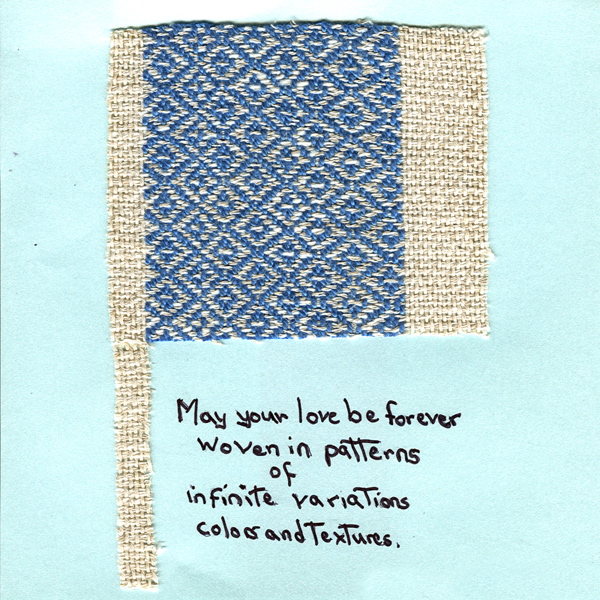 May your love be forever
woven in patterns
of
infinite variations
colors and textures.